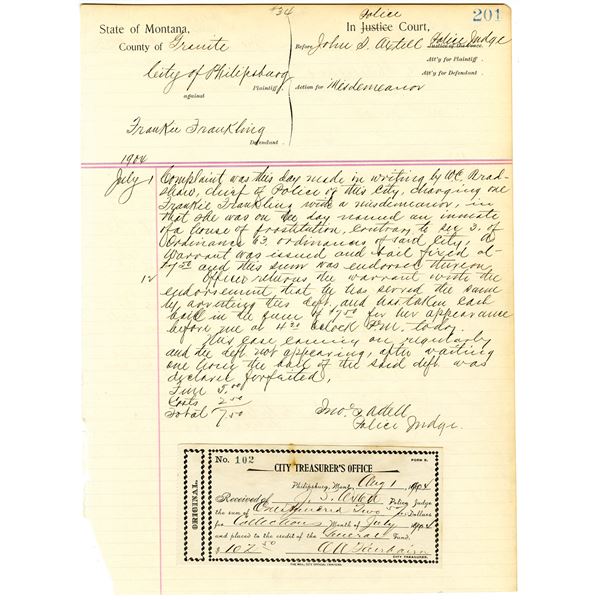 #34
201
State of Montana,
County of Granite
In Justice Court,
Police
Before John T. Axtell Police Judge
Justice of the Peace.
City of Philipsburg
Plaintiff.
against
Att'y for Plaintiff.
Att'y for Defendant.
Action for Misdemeanor
Frankie Frankling
Defendant.
1904
July 1 Complaint was this day made in writing by W.C. Brad-
shaw, chief of Police of this City, charging one
Frankie Frankling with a misdemeanor, in
that she was on the day named an inmate
of a house of prostitution, contrary to sec 2. of
Ordinance 63 ordinances of said City, A
warrant was issued and bail fixed at
7.50 and this sum was endorsed thereon.
12 Officer returns the warrant with the
endorsement that he has served the same
by arresting this deft. and has taken cash
bail in the sum of $7.50 for her appearance
before me at 4:30 oclock P.M. today.
This case coming on regularly
and the deft not appearing, after waiting
one hour the bail of the said deft was
declared forfeited,
Fine 5.00
Costs 2.50
Total 7.50
Jno. T. Axtell
Police Judge.
No. 102
FORM 8.
ORIGINAL.
CITY TREASURER'S OFFICE
Philipsburg, Mont., Aug 1 1904
Received of J. T. Axtell Police Judge
the sum of One Hundred Two 50/100 Dollars
for Collections Month of July 1904
and placed to the credit of the General Fund.
$102.50
CITY TREASURER.